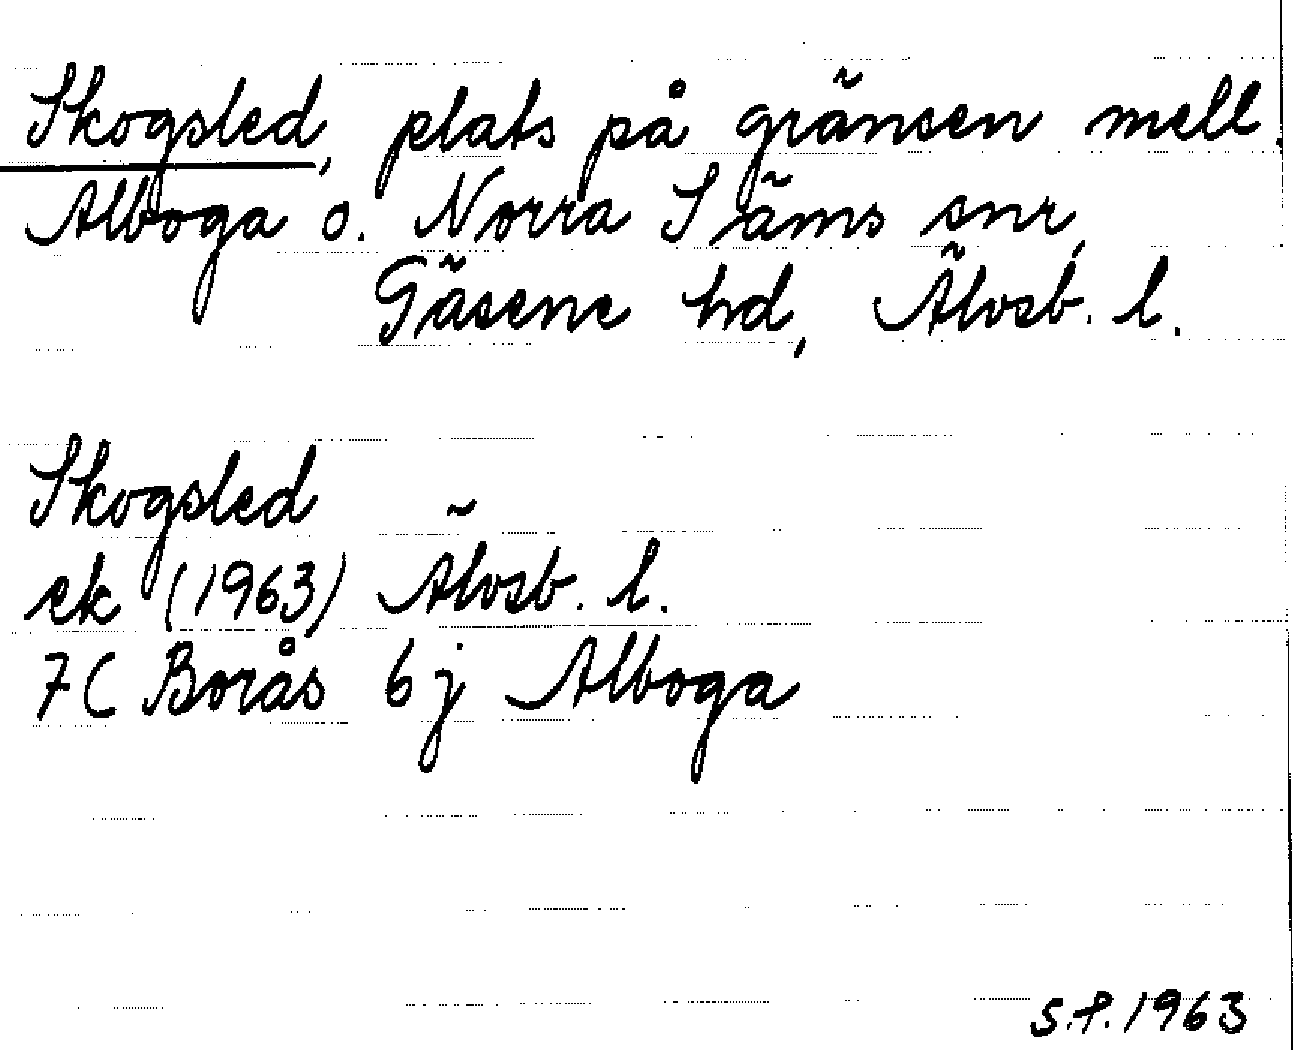 Skogsled, plats på gränsen mell.
Alboga o. Norra Säms snr,
Gäsene hd, Älvsb. l.
Skogsled
ek (1963) Älvsb. l.
7C Borås 6j Alboga
S.P. 1963